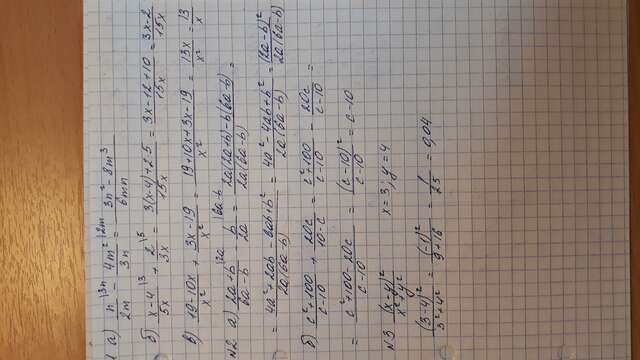 1 а) n/2m \3n - 4m²/3n \2m = 3n² - 8m³/6mn
б) x-4/5x \3 + 2/3x \5 = 3(x-4)+2·5/15x = 3x-12+10/15x = 3x-2/15x
в) 19-10x/x² + 3x-19/x² = 19+10x+3x-19/x² = 13x/x² = 13/x
№2 а) 2a+b/6a-b \2a - b/2a \6a-b = 2a(2a+b)-b(6a-b)/2a(6a-b) =
= 4a²+2ab-6ab+b²/2a(6a-b) = 4a²-4ab+b²/2a(6a-b) = (2a-b)²/2a(6a-b)
б) c²+100/c-10 + 20c/10-c = c²+100/c-10 - 20c/c-10 =
= c²+100-20c/c-10 = (c-10)²/c-10 = c-10
№3 (x-y)²/x²+y² x=3; y=4
(3-4)²/3²+4² = (-1)²/9+16 = 1/25 = 0,04